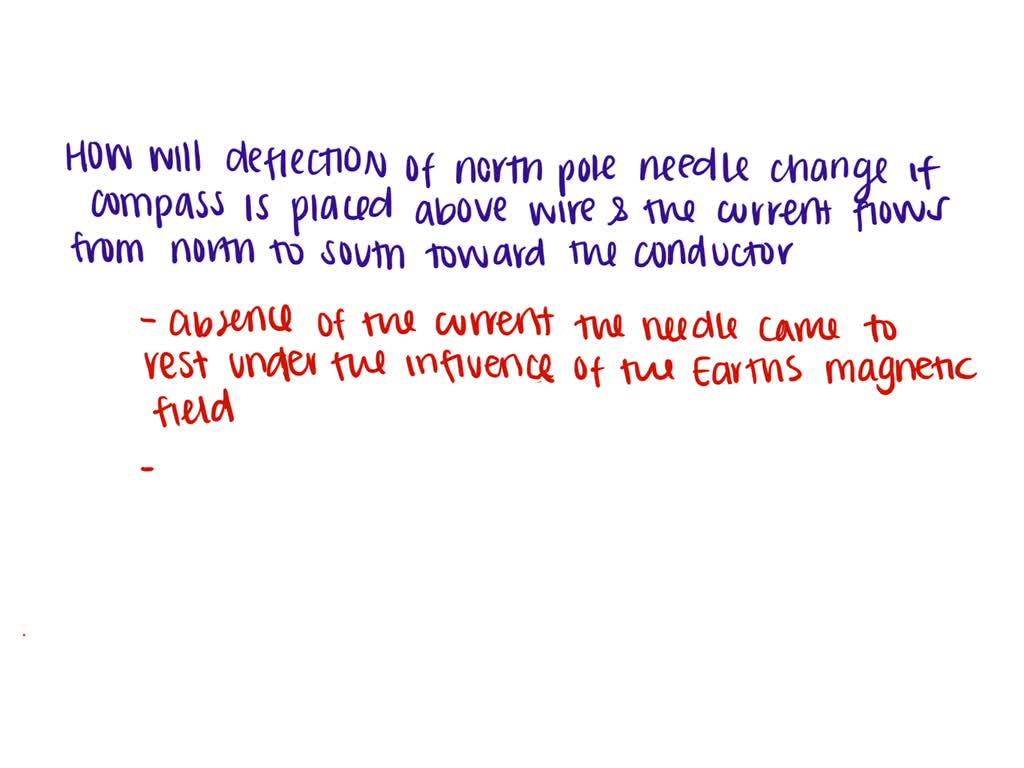 How will deflection of north pole needle change if
compass is placed above wire & the current flows
from north to south toward the conductor
- absence of the current the needle came to
rest under the influence of the Earths magnetic
field
-